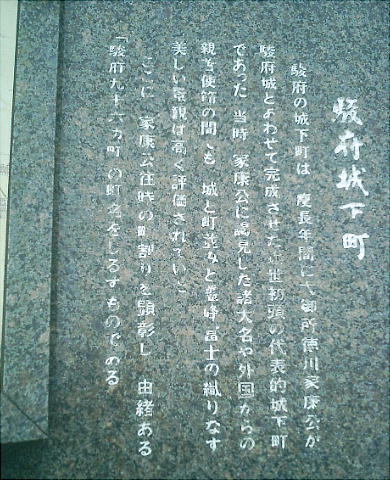 駿府城下町
駿府の城下町は 慶長年間に大御所徳川家康公が
駿府城とあわせて完成させた近世初頭の代表的城下町
であった 当時 家康公に謁見した諸大名や外国からの
親善使節の間でも 城と町並みと霊峰富士の織りなす
美しい景観は高く評価されていた
ここに 家康公在時の町割りを顕彰し 由緒ある
「駿府九十六ヵ町」の町名をしるすものである